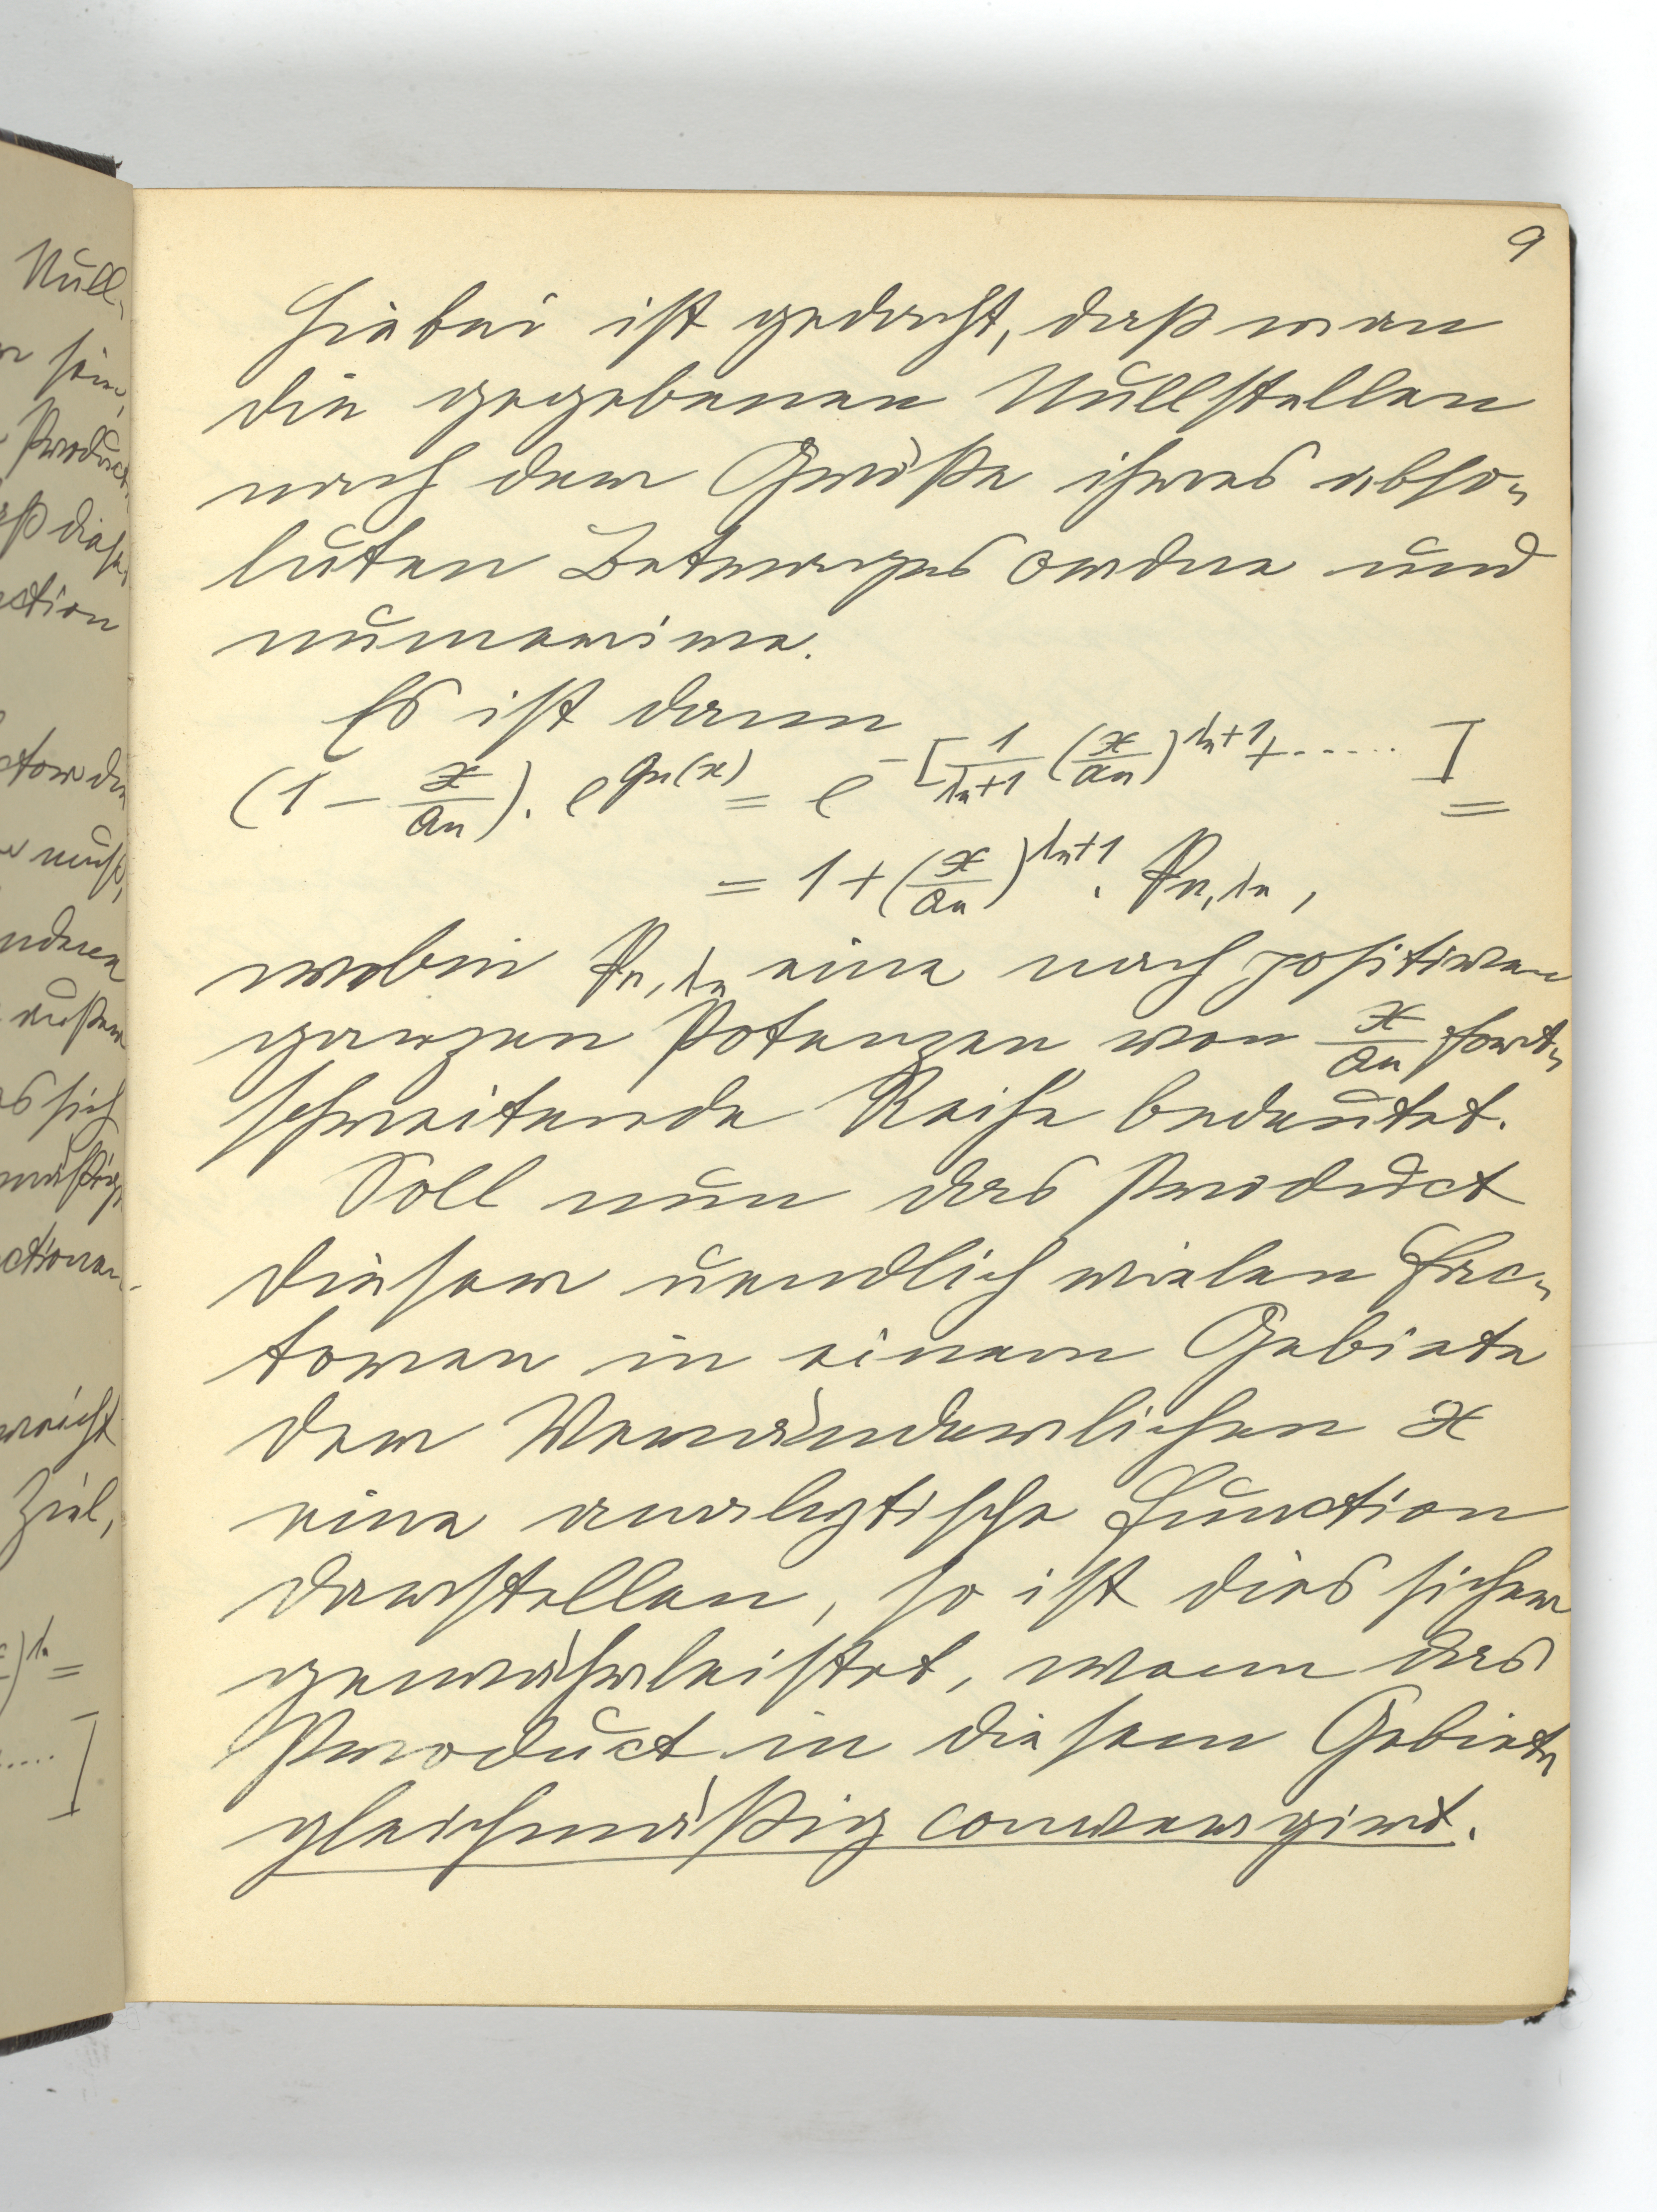 Null-
sein,
Product
daß dieses
ction
ctor die
muß,
anderen
außer
es sich
mäßig
ctionen
reicht
Ziel,
)^{λn} =
..... ]
9
Hiebei ist gedacht, daß man
die gegebenen Nullstellen
nach der Größe ihres abso-
luten Betrages ordne und
numerire.
Es ist dann
(1 - x/an) . e^{gn(x)} = e^{-[1/(λn+1) (x/an)^{λn+1} + ......]} =
= 1 + (x/an)^{λn+1} . Pn,λn ,
wobei Pn,λn eine nach positiven
ganzen Potenzen von x/an fort-
schreitende Reihe bedeutet.
Soll nun das Product
dieser unendlich vielen Fac-
toren in einem Gebiete
der Veränderlichen x
eine analytische Function
darstellen, so ist dies sicher
gewährleistet, wenn das
Product in diesem Gebiete
gleichmäßig convergirt.